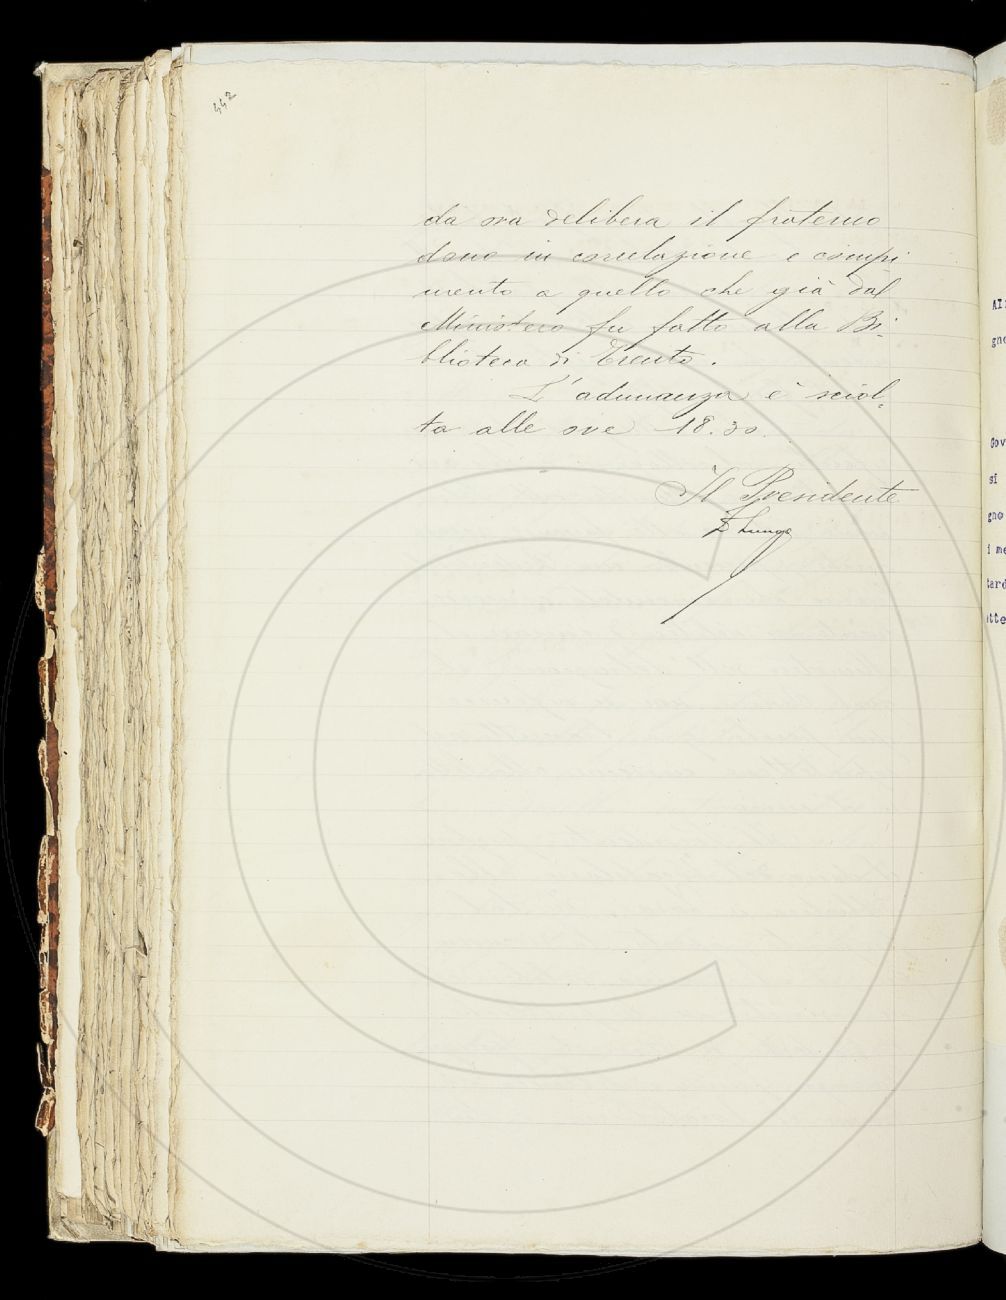 442
da ora delibera il fraterno
dono in correlazione e compi
mento a quello che già dal
Ministero fu fatto alla Bi-
blioteca di Trento.
L'adunanza è sciol-
ta alle ore 18.30.
Il Presidente
Lungo
gno
Gov
si
gno
i me
tard
atte